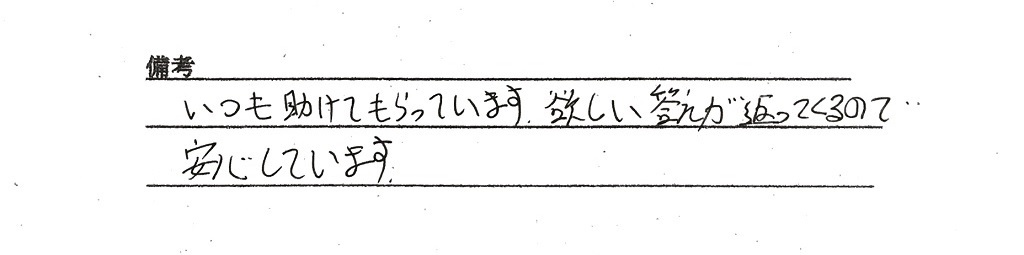 備考
いつも助けてもらっています。欲しい答えが返ってくるので
安心しています。